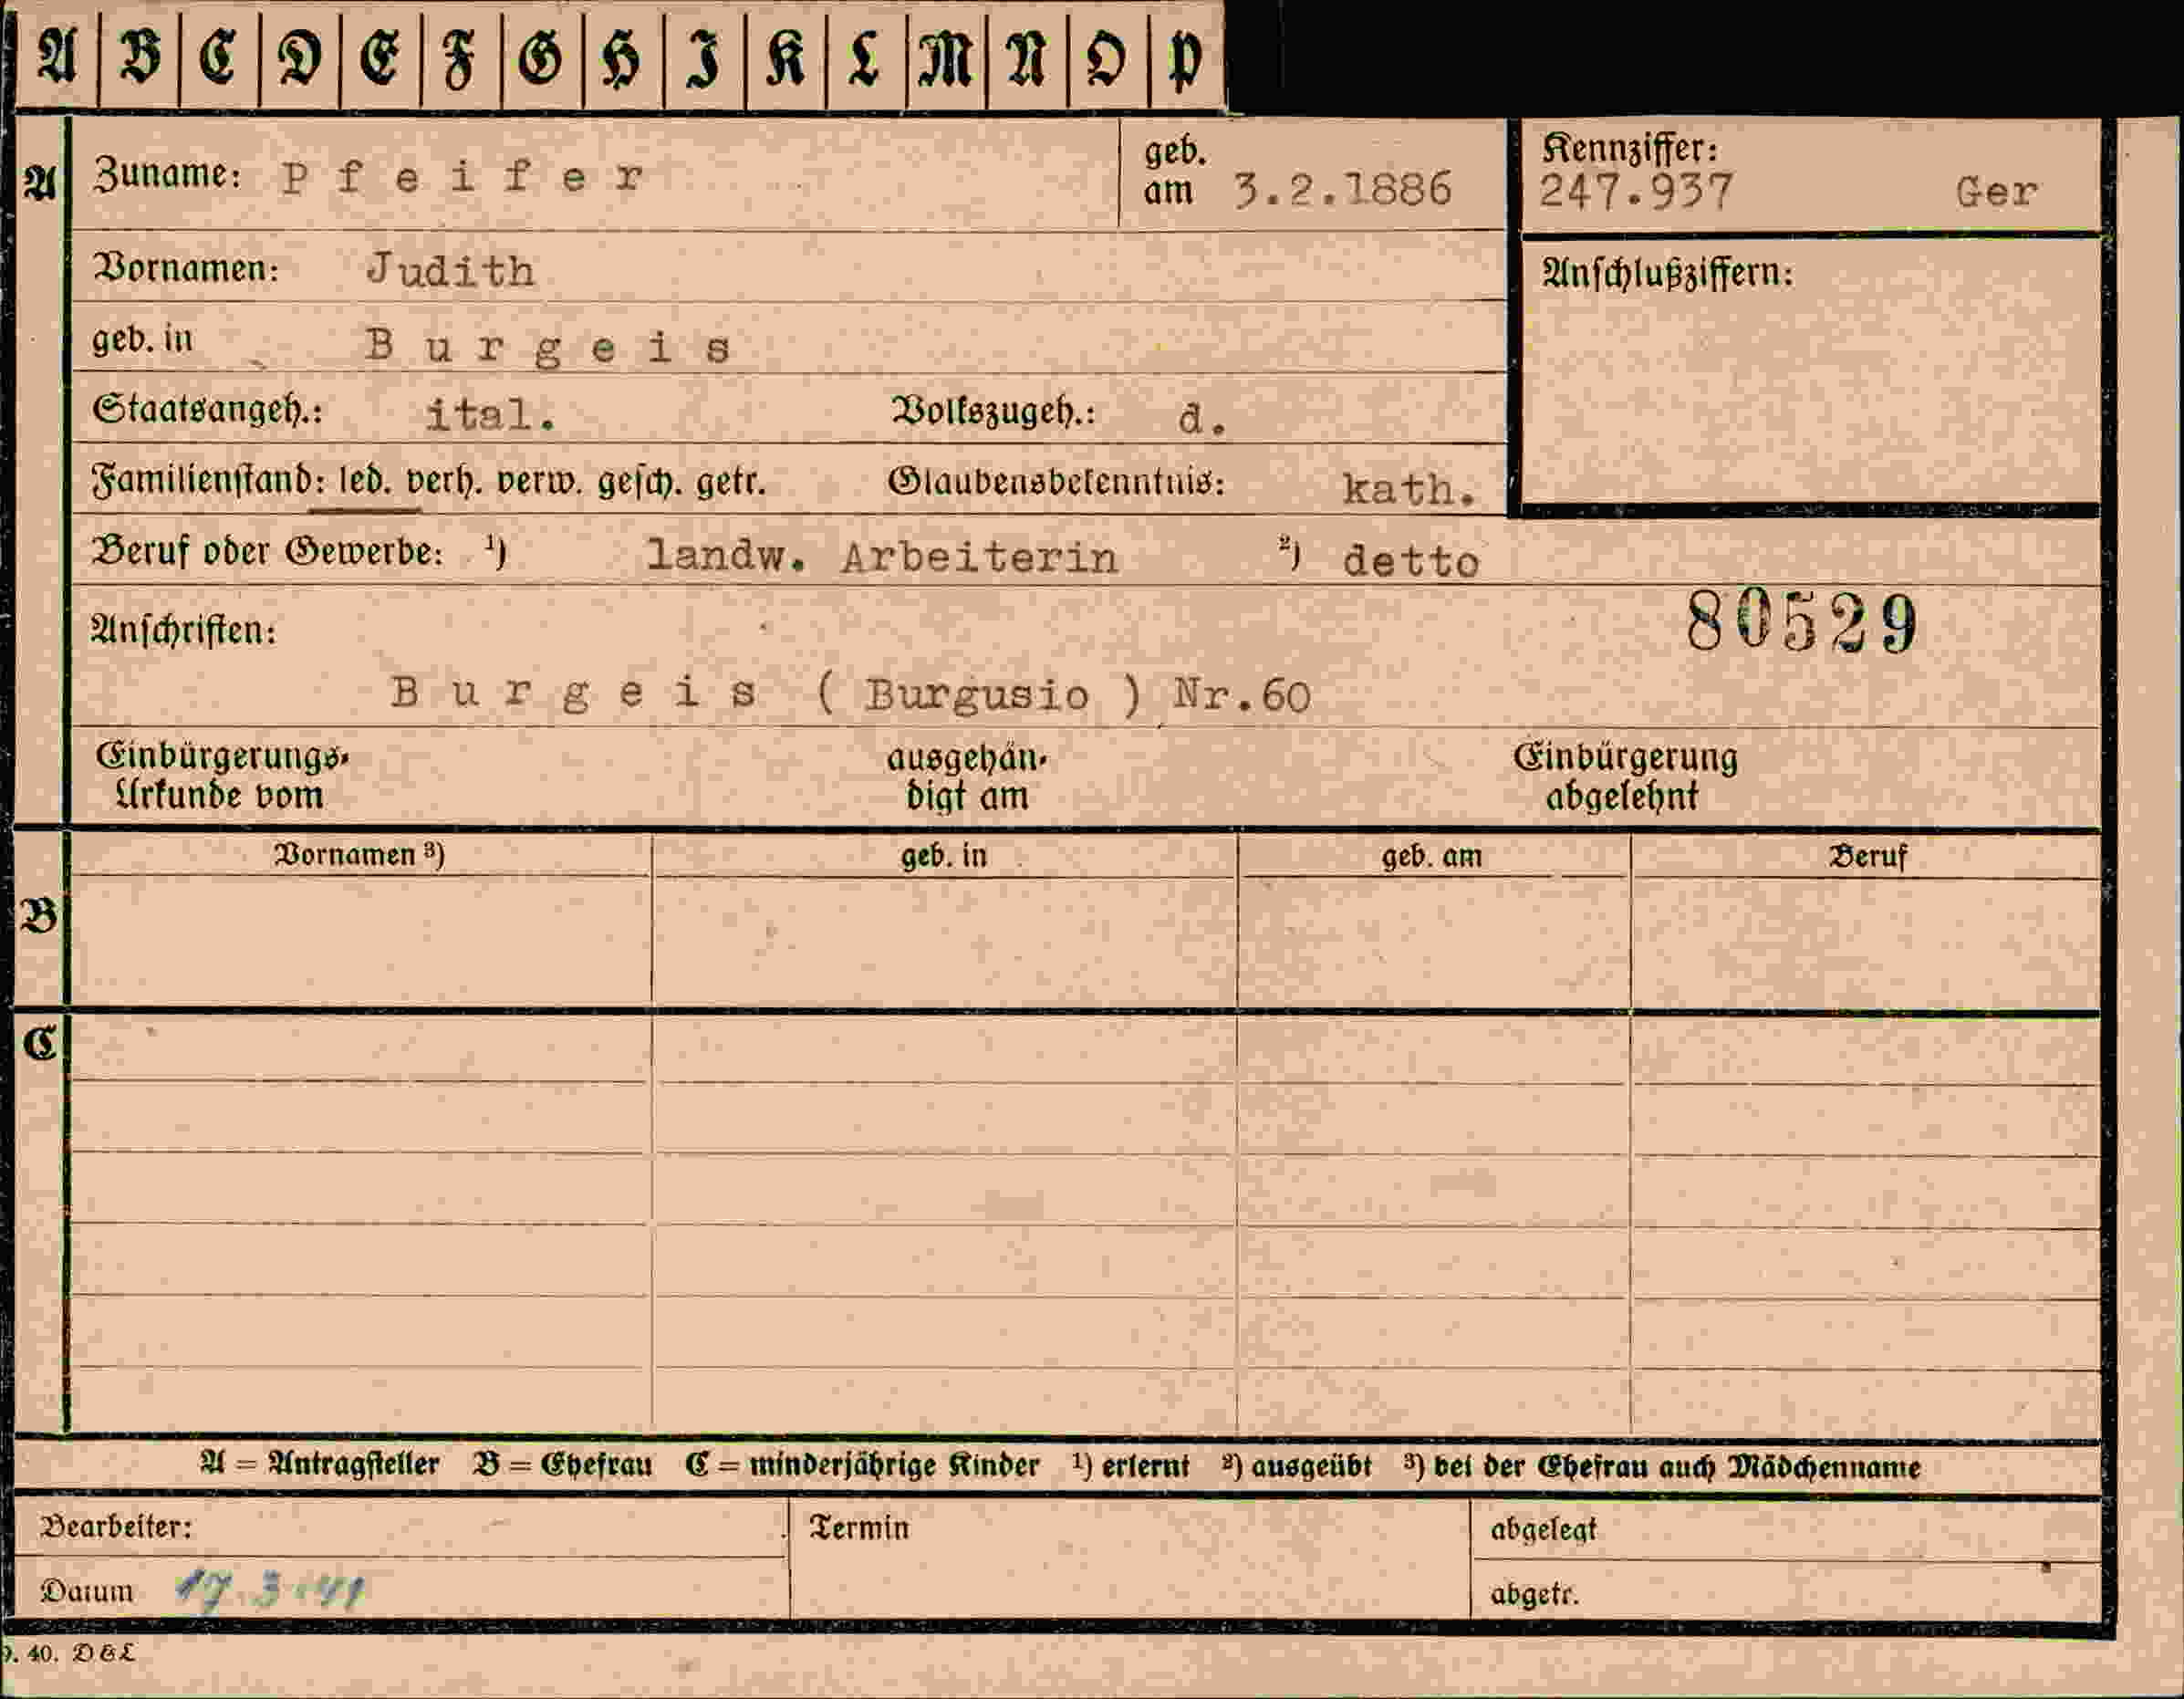 A B C D E F G H I K L M N O P
A Zuname: Pfeifer geb. am 3.2.1886 Kennziffer: 247.937 Ger
Vornamen: Judith Anschlußziffern:
geb. in Burgeis
Staatsangeh.: ital. Volkszugeh.: d.
Familienstand: led. verh. verw. gesch. getr. Glaubensbekenntnis: kath.
Beruf oder Gewerbe: ¹) landw. Arbeiterin ²) detto
Anschriften: 80529
Burgeis ( Burgusio ) Nr.60
Einbürgerungs- ausgehän- Einbürgerung
Urkunde vom digt am abgelehnt
Vornamen ³) geb. in geb. am Beruf
B
C
A = Antragsteller B = Ehefrau C = minderjährige Kinder ¹) erlernt ²) ausgeübt ³) bei der Ehefrau auch Mädchenname
Bearbeiter: Termin abgelegt
Datum 17.3.41 abgetr.
9. 40. D&L